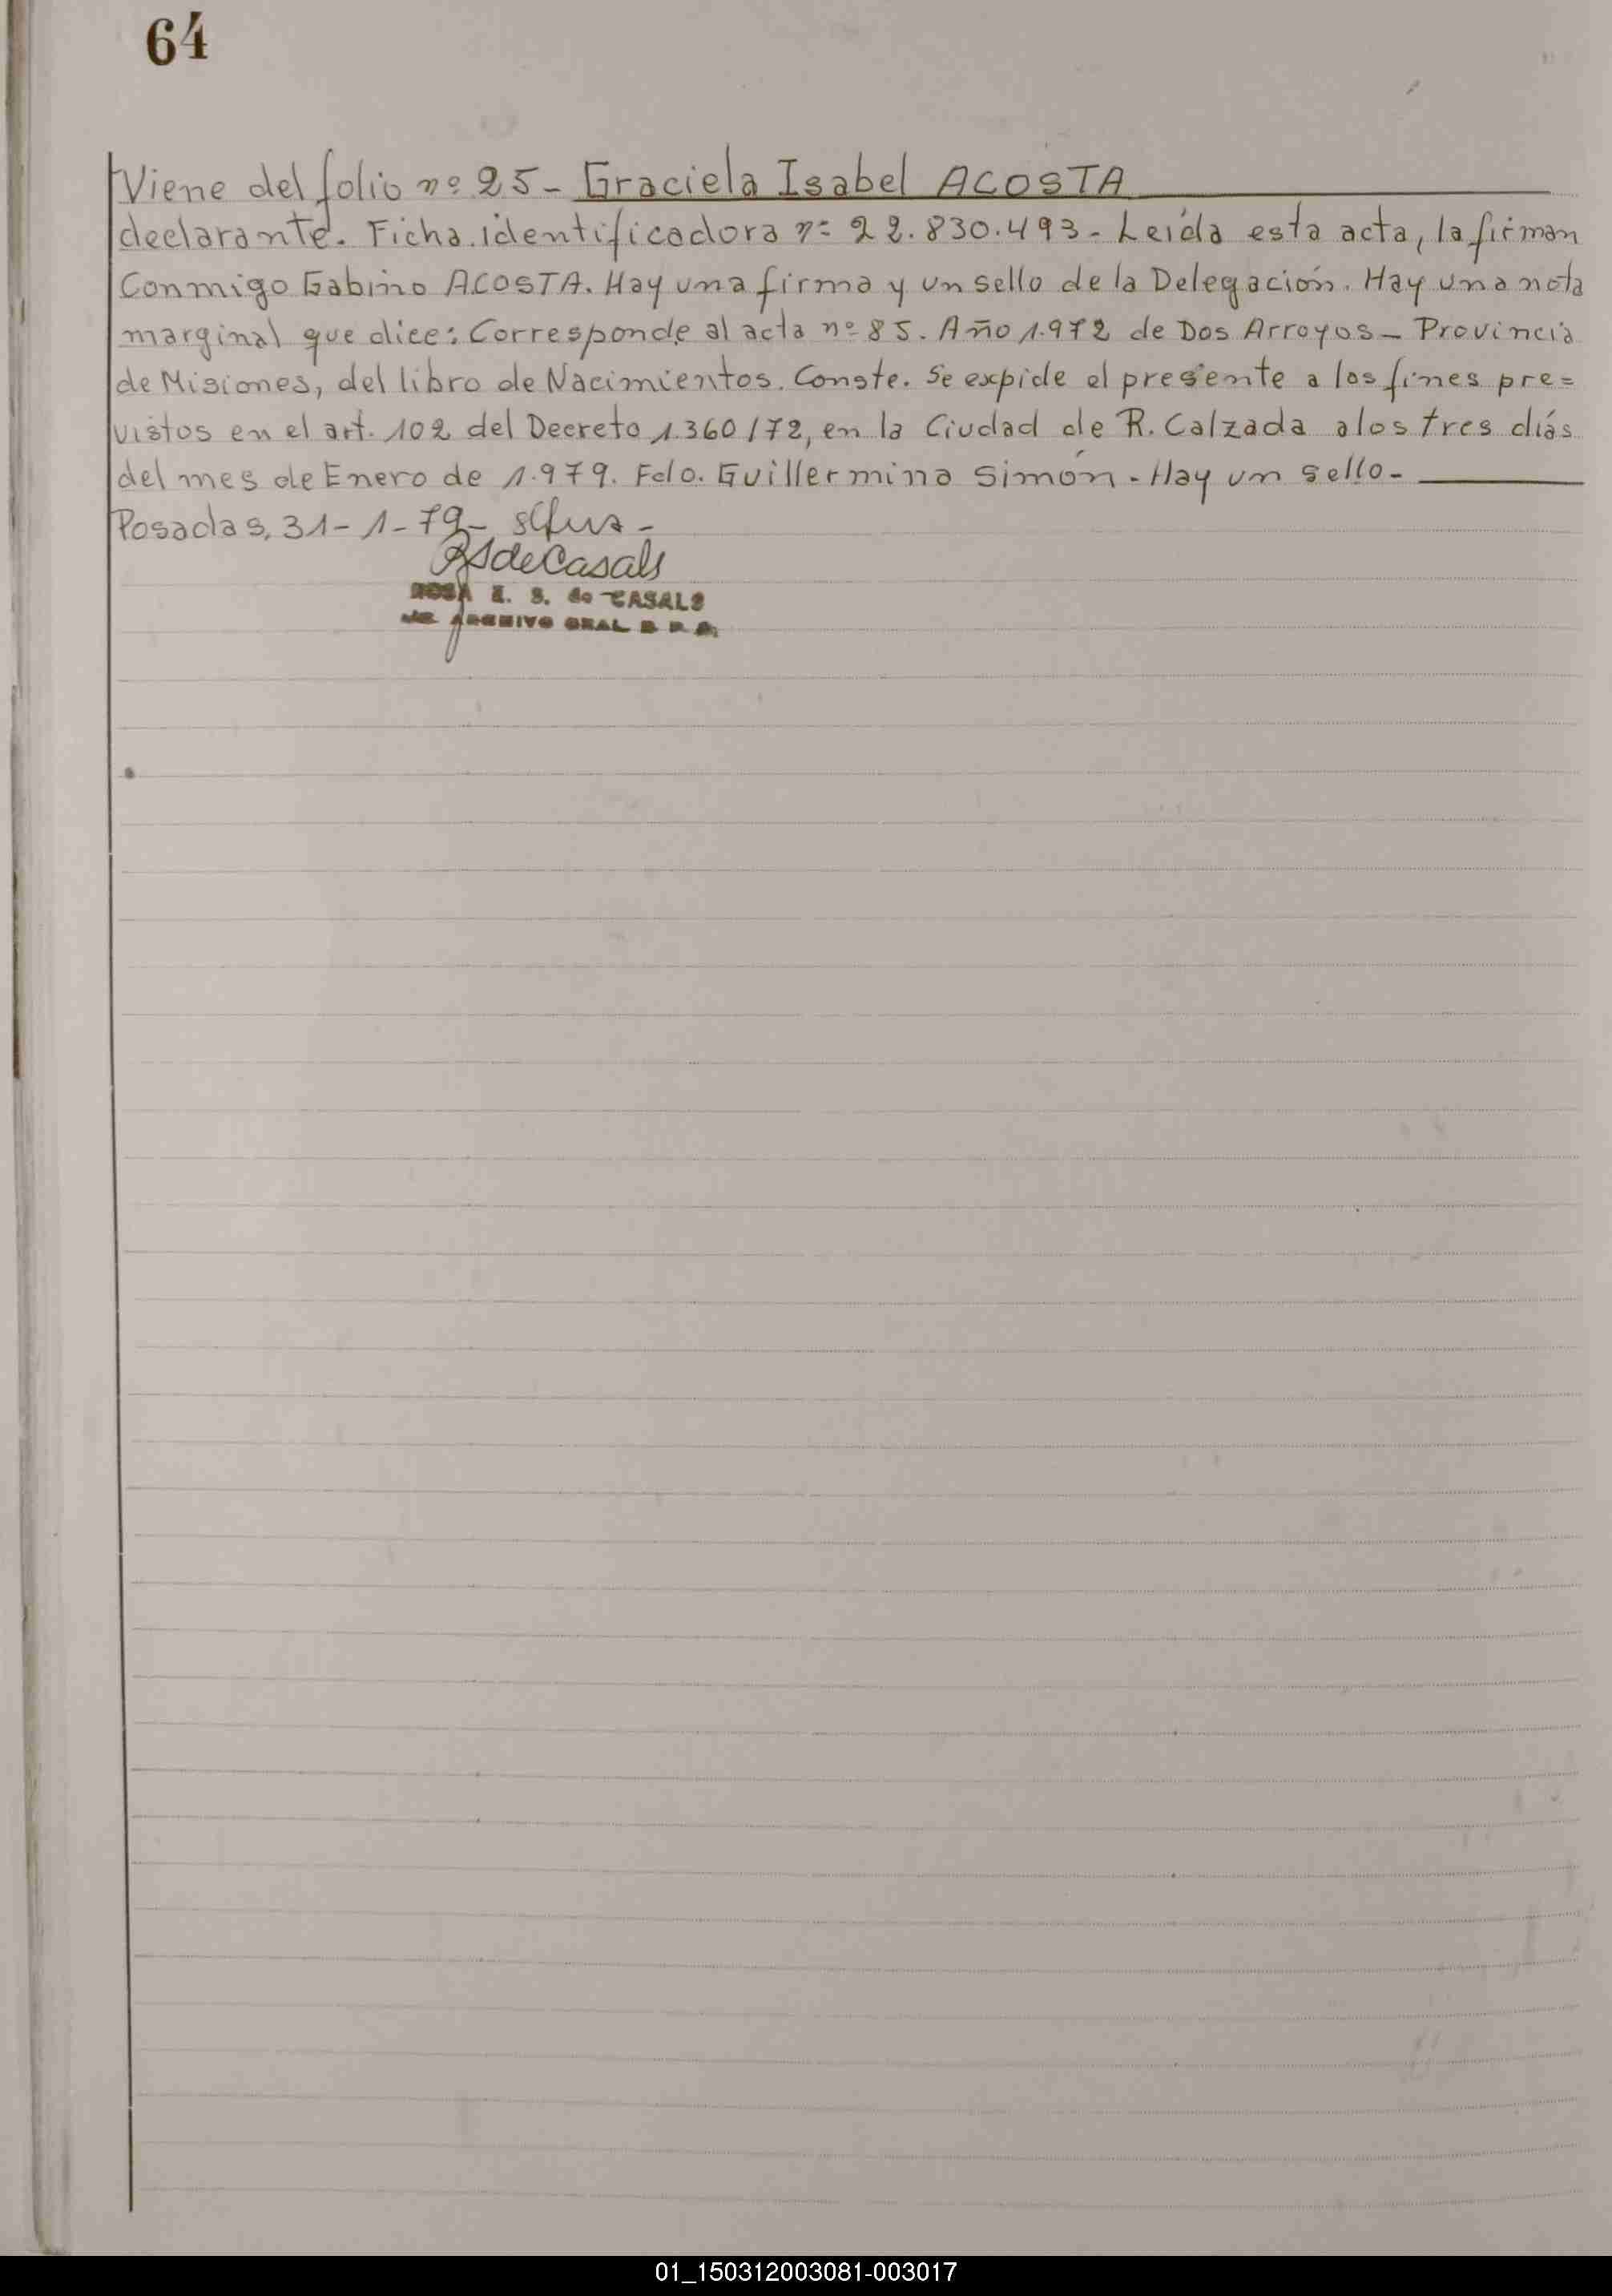 64
Viene del folio nº 25 - Graciela Isabel ACOSTA
declarante. Ficha identificadora nº 22.830.493 - Leída esta acta, la firman
Conmigo Gabino ACOSTA. Hay una firma y un sello de la Delegación. Hay una nota
marginal que dice: Corresponde al acta nº 85. Año 1.972 de Dos Arroyos - Provincia
de Misiones, del libro de Nacimientos. Conste. Se expide el presente a los fines pre=
vistos en el art. 102 del Decreto 1.360/72, en la Ciudad de R. Calzada a los tres días
del mes de Enero de 1.979. Fdo. Guillermina Simón - Hay un sello -
Posadas, 31-1-79-
RSdeCasals
ROSA E. S. de CASALS
ARCHIVO GRAL
01_150312003081-003017